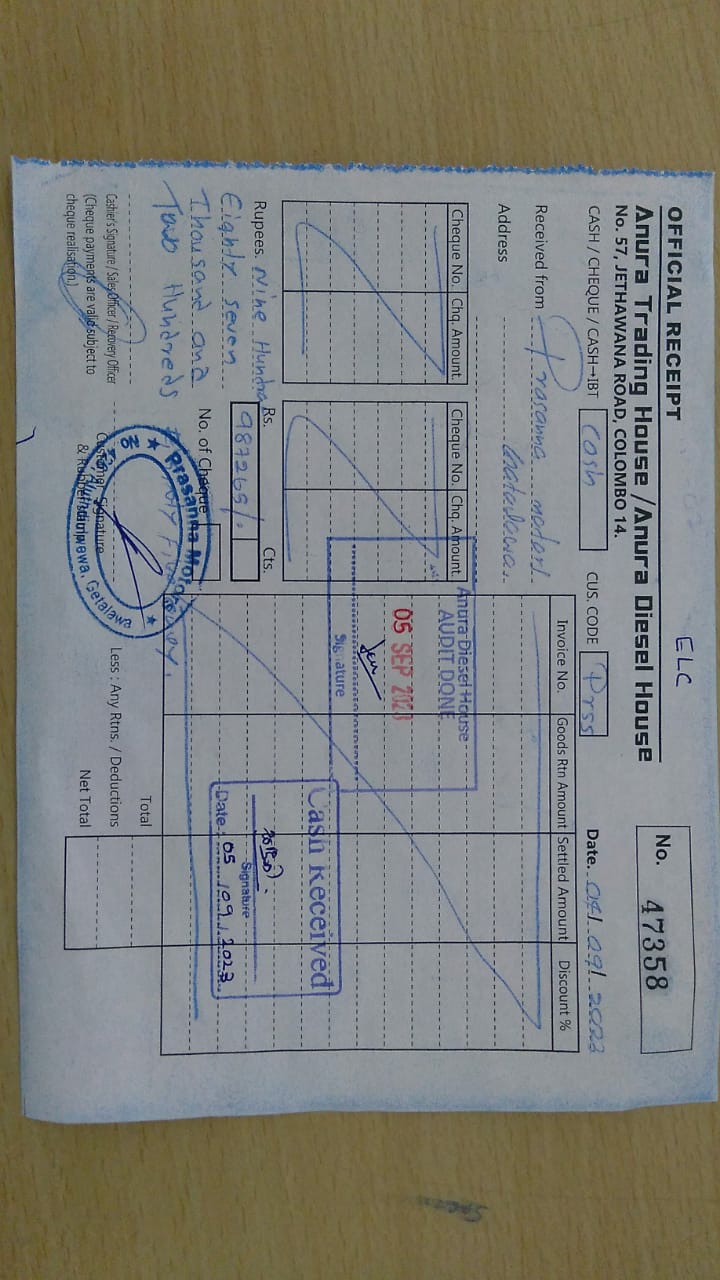 ELC
OFFICIAL RECEIPT
No. 47358
Anura Trading House / Anura Diesel House
No. 57, JETHAWANA ROAD, COLOMBO 14.
CASH / CHEQUE / CASH→IBT Cash CUS. CODE Date. 04/.09/.2023
Received from Prasanna
Address
Cheque No. Chq. Amount Cheque No. Chq. Amount
Invoice No. Goods Rtn Amount Settled Amount Discount %
Anura Diesel House
AUDIT DONE
05 SEP 2023
Signature
Cash Received
Signature
Date : 05 / 09 / 2023
Rs. Cts.
Rupees. Nine Hundred 987265/.
Eighty Seven
Thousand and No. of Cheque
Two Hundreds
Prasanna Motors
Galewela
Cashier's Signature / Sales Officer / Recovery Officer
(Cheque payments are valid subject to
cheque realisation.)
Customer Signature
& Rubber Stamp
Total
Less : Any Rtns. / Deductions
Net Total